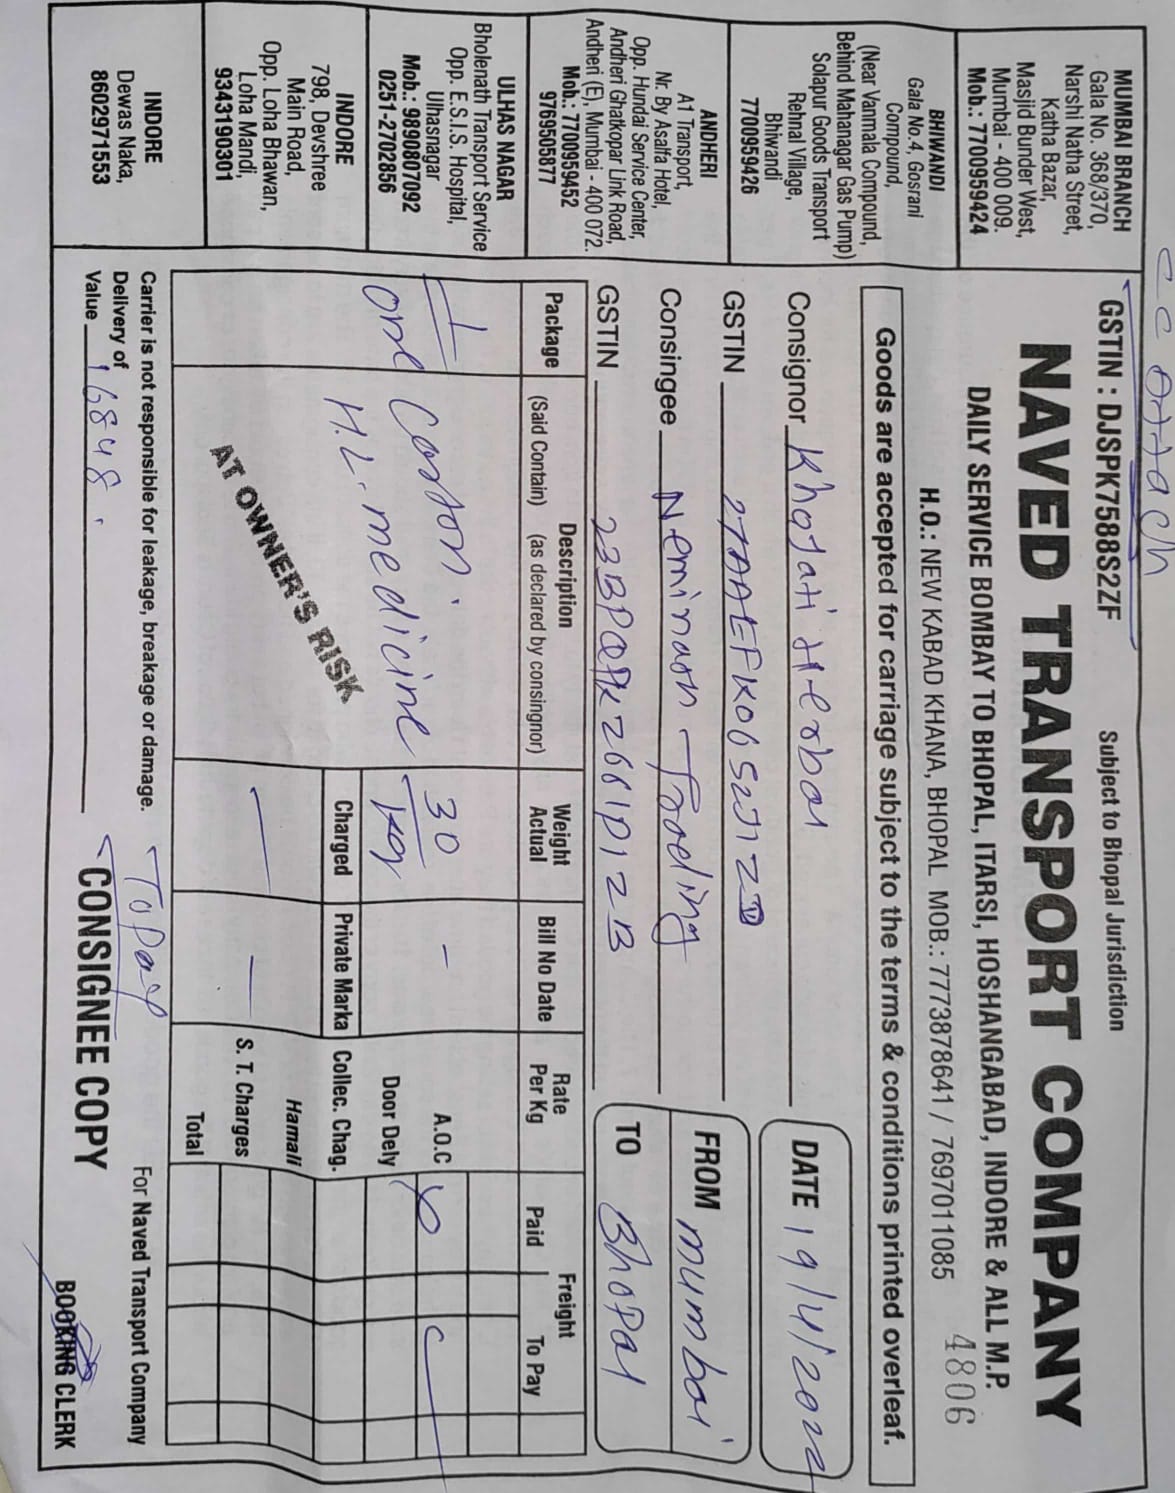 CC attach
GSTIN : DJSPK7588S2ZF
Subject to Bhopal Jurisdiction
NAVED TRANSPORT COMPANY
DAILY SERVICE BOMBAY TO BHOPAL, ITARSI, HOSHANGABAD, INDORE & ALL M.P.
H.O.: NEW KABAD KHANA, BHOPAL MOB.: 7773878641 / 7697011085
4806
Goods are accepted for carriage subject to the terms & conditions printed overleaf.
MUMBAI BRANCH
Gala No. 368/370,
Narshi Natha Street,
Katha Bazar,
Masjid Bunder West,
Mumbai - 400 009.
Mob.: 7700959424
BHIWANDI
Gala No.4, Gosrani
Compound,
(Near Vanmala Compound,
Behind Mahanagar Gas Pump)
Solapur Goods Transport
Rehnal Village,
Bhiwandi
7700959426
ANDHERI
A1 Transport,
Nr. By Asalfa Hotel,
Opp. Hundai Service Center,
Andheri Ghatkopar Link Road,
Andheri (E), Mumbai - 400 072.
Mob.: 7700959452
9769505877
ULHAS NAGAR
Bholenath Transport Service
Opp. E.S.I.S. Hospital,
Ulhasnagar
Mob.: 9890807092
0251-2702856
INDORE
798, Devshree
Main Road,
Opp. Loha Bhawan,
Loha Mandi,
9343190301
INDORE
Dewas Naka,
8602971553
Consignor Khajati Herbal
GSTIN
Consingee Neminath Trading
GSTIN 23BPQPK2661P1ZB
DATE 19/4/2022
FROM mumbai
TO Bhopal
Package
Description
(Said Contain) (as declared by consingnor)
Weight
Actual
Bill No Date
Rate
Per Kg
Freight
Paid
To Pay
1
one
Carton.
H.L. medicine
30
kg
-
A.O.C
Door Dely
Charged
Private Marka
Collec. Chag.
Hamali
S. T. Charges
Total
AT OWNER'S RISK
Carrier is not responsible for leakage, breakage or damage.
Delivery of
Value 16848.
To Pay
CONSIGNEE COPY
For Naved Transport Company
BOOKING CLERK